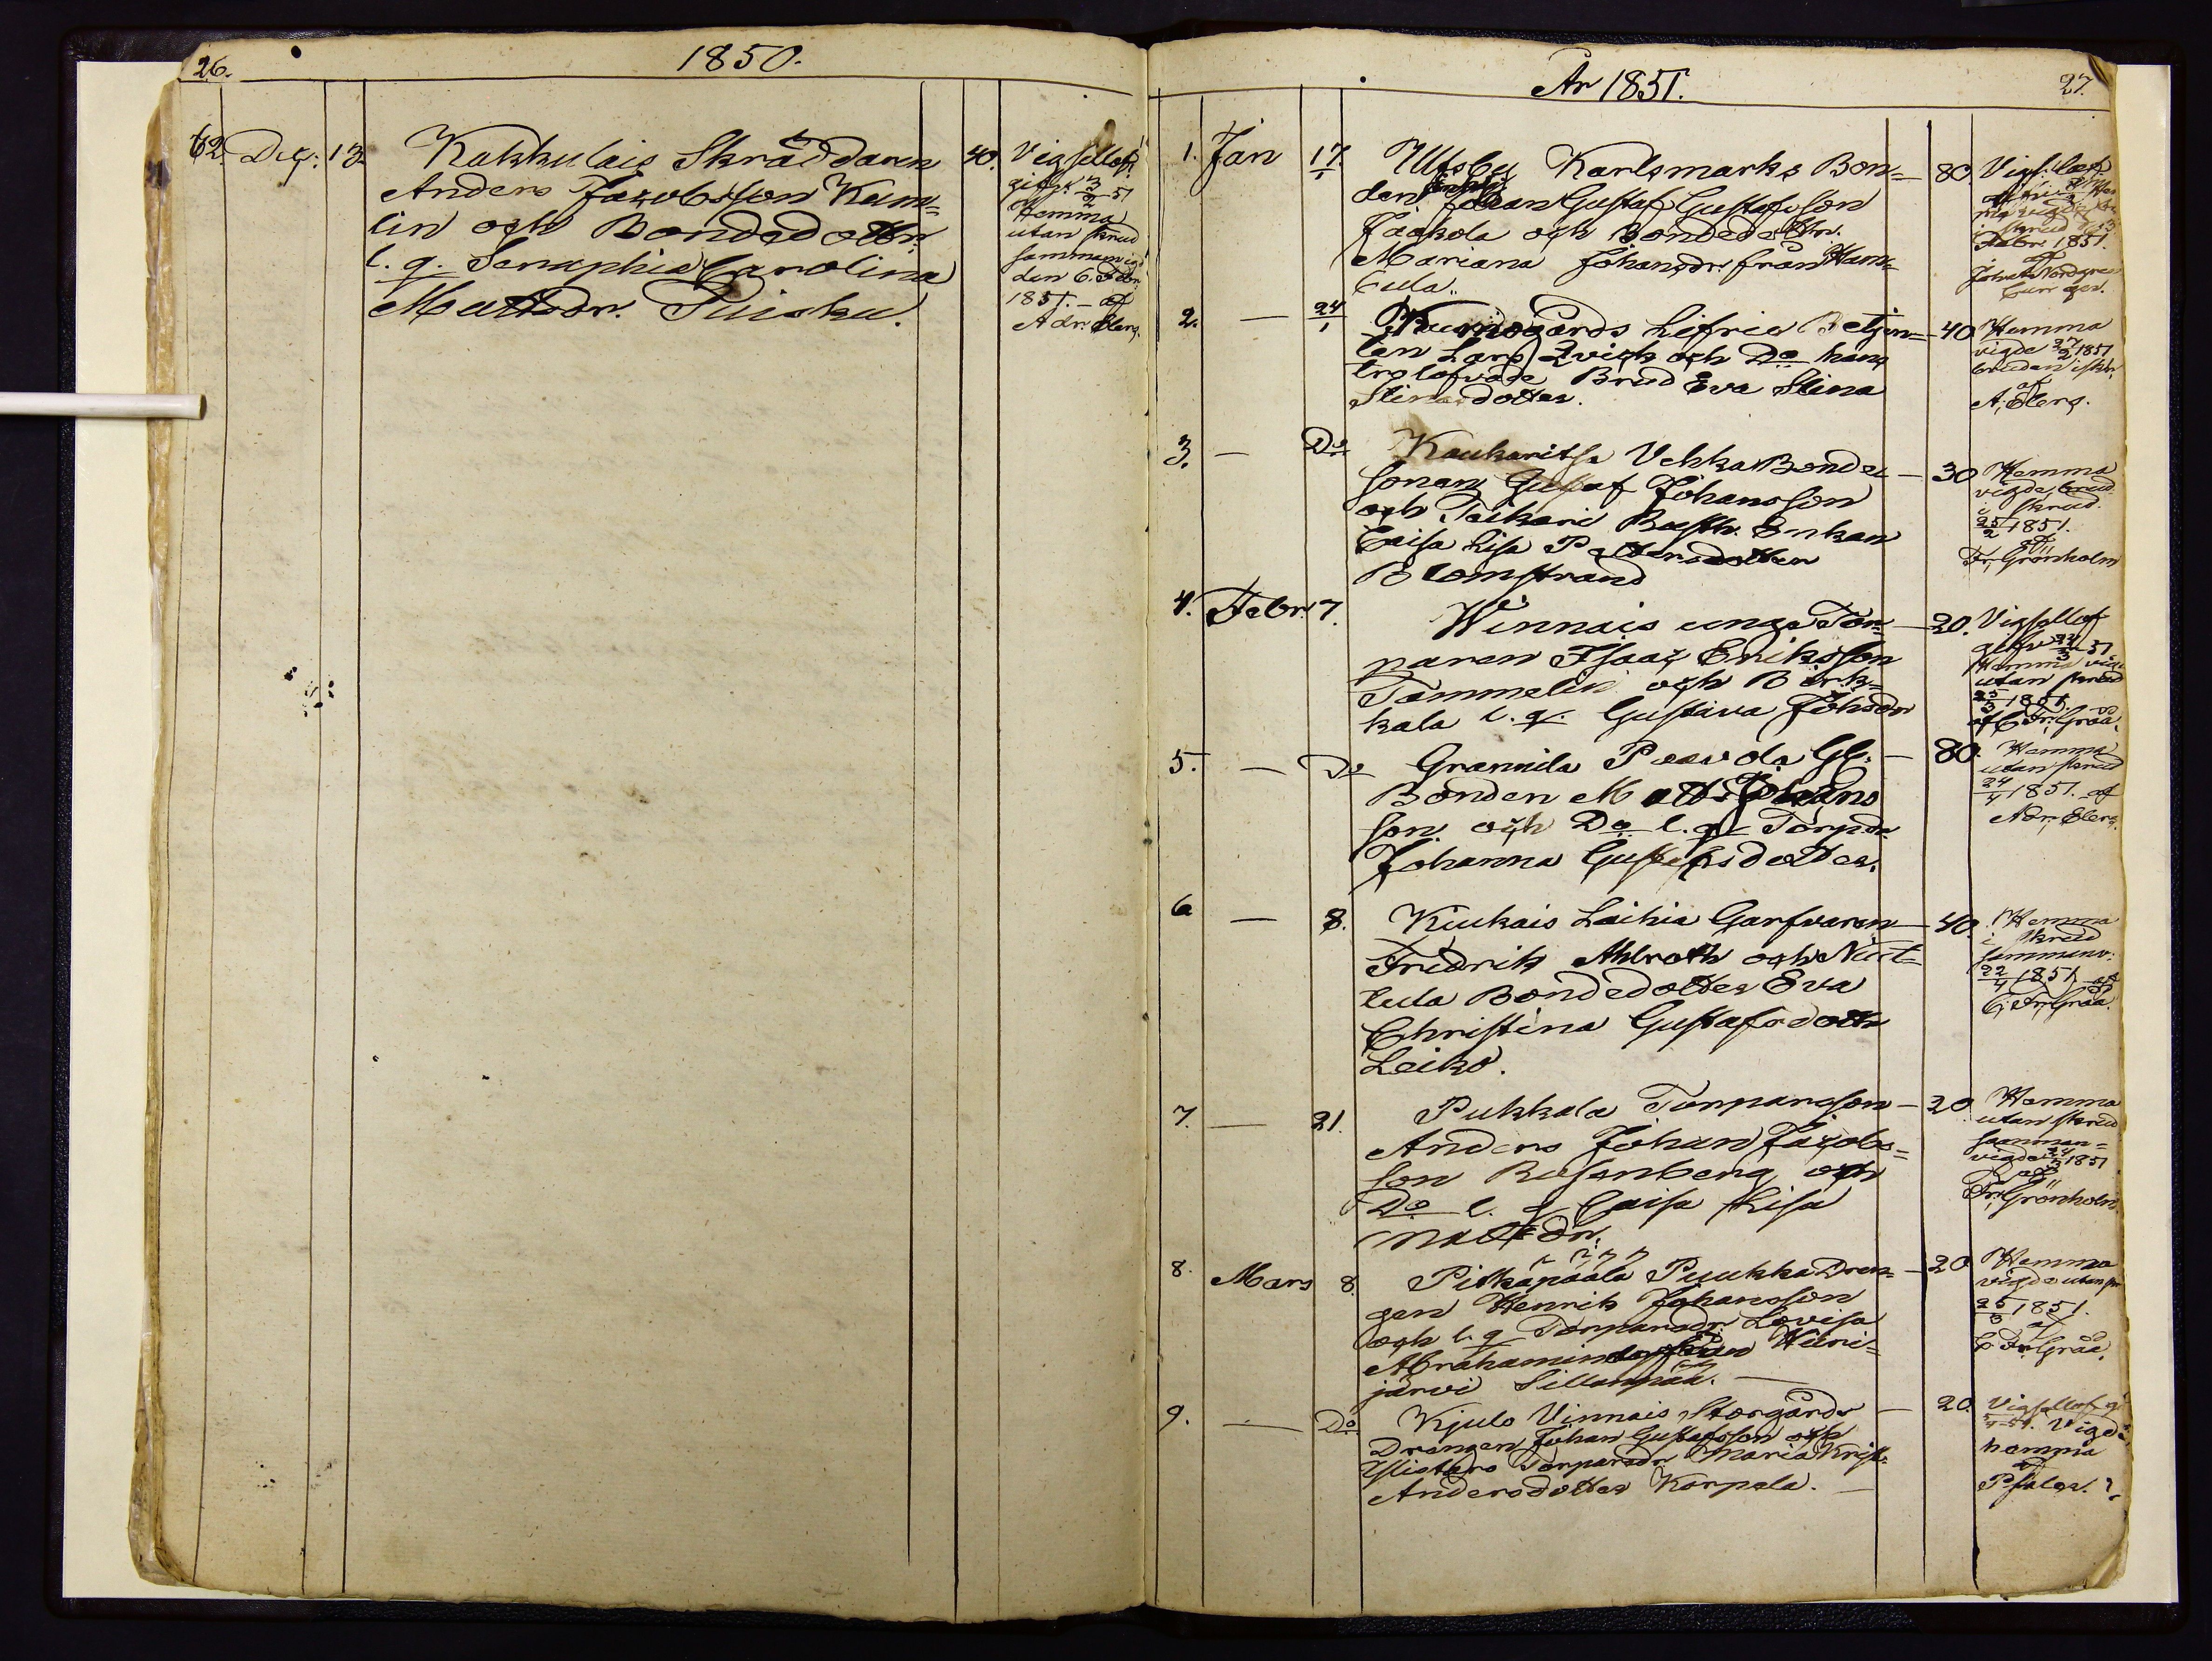 26.
1850.
62. Dec: 13. Kakkulais Skräddaren 40. Vigsellof
Anders Jacobsson Kum=
lin och Bondedottr.
l. q. Seraphia Carolina
Mattsdr. Puisku.
gifv. 3/2 51
Hemma
utan skrud
sammanvigd
den 6. Febr.
1851. – af
Adr: Elerg.
År 1851.
27.
1. Jan 17. Ulfsby Karlsmarks Bon= 80.
den Johan Gustaf Gustafsson
Jaakola och Bondedottr.
Mariana Johansdr. från Ham=
Cula.
Vigs. lof
Febr. 1851.
af
Johan Nordgren
2. — 24/1 Lifries Betjen= 40
ten Lars Qvick och Do hans
trolofvade Brud Eva Stina
Stinadotter.
Hemma
vigde 27/2 1851
bruden i skr.
af
A. Elerg.
3. — Do Kaukaritsa Vekka Bonde 30
sonen Gustaf Johansson
och Teikari Busth. Enkan
Caisa Lisa Pettersdotter
Blomstrand
Hemma
vigde, brud
i skrud.
25/2 1851.
af
Fr. Grönholm
4. Febr. 7. Winnais unge Tor= 20.
paren Isaac Eriksson
Tammelin och Birk=
kala l. q. Gustava Johsdr
Vigsellof
gifv 24/3 51
Hemma vigd
utan skrud
25/3 1851.
af C. Fr. Gråå.
5. — Do Grannila Paavola Gl. — 80.
Bonden Matts Johans
son och Do l. q. Torpdr
Johanna Gustafsdotter.
Hemma
utan skrud
24/4 1851. af
Adr. Elerg.
6 — 8. Kiukais Laihia Garfvaren 40.
Fridrik Ahlroth och Niit=
tula Bondedotter Eva
Christina Gustafsdottr
Leiko.
Hemma
i skrud
sammanv:
22/4 1851, af
C. Fr. Gråå.
7. — 21. Pukkala Torparsson — 20
Anders Johan Jacobs=
son Rosenberg och
Do l. q. Caisa Lisa
Mattsdr.
Hemma
utan skrud
samman=
vigde 24/3 1851
af
Fr. Grönholm.
8. Mars 8. Pitkäpäälä Puukka Drän= 20
gen Henrik Johansson
och l. q. Torparedr. Lovisa
Hiiri=
järvi Sillanpää. —
Hemma
vigde utan
25/3 1851.
af
C Fr. Gråå.
9. — Do Kjulo Vinnais Storgårds — 20.
Drängen Johan Gustafsson och
Ylistaro Torparedr Maria Krist.
Andersdotter Korpela. —
Vigsellof
Vigde
hemma
af